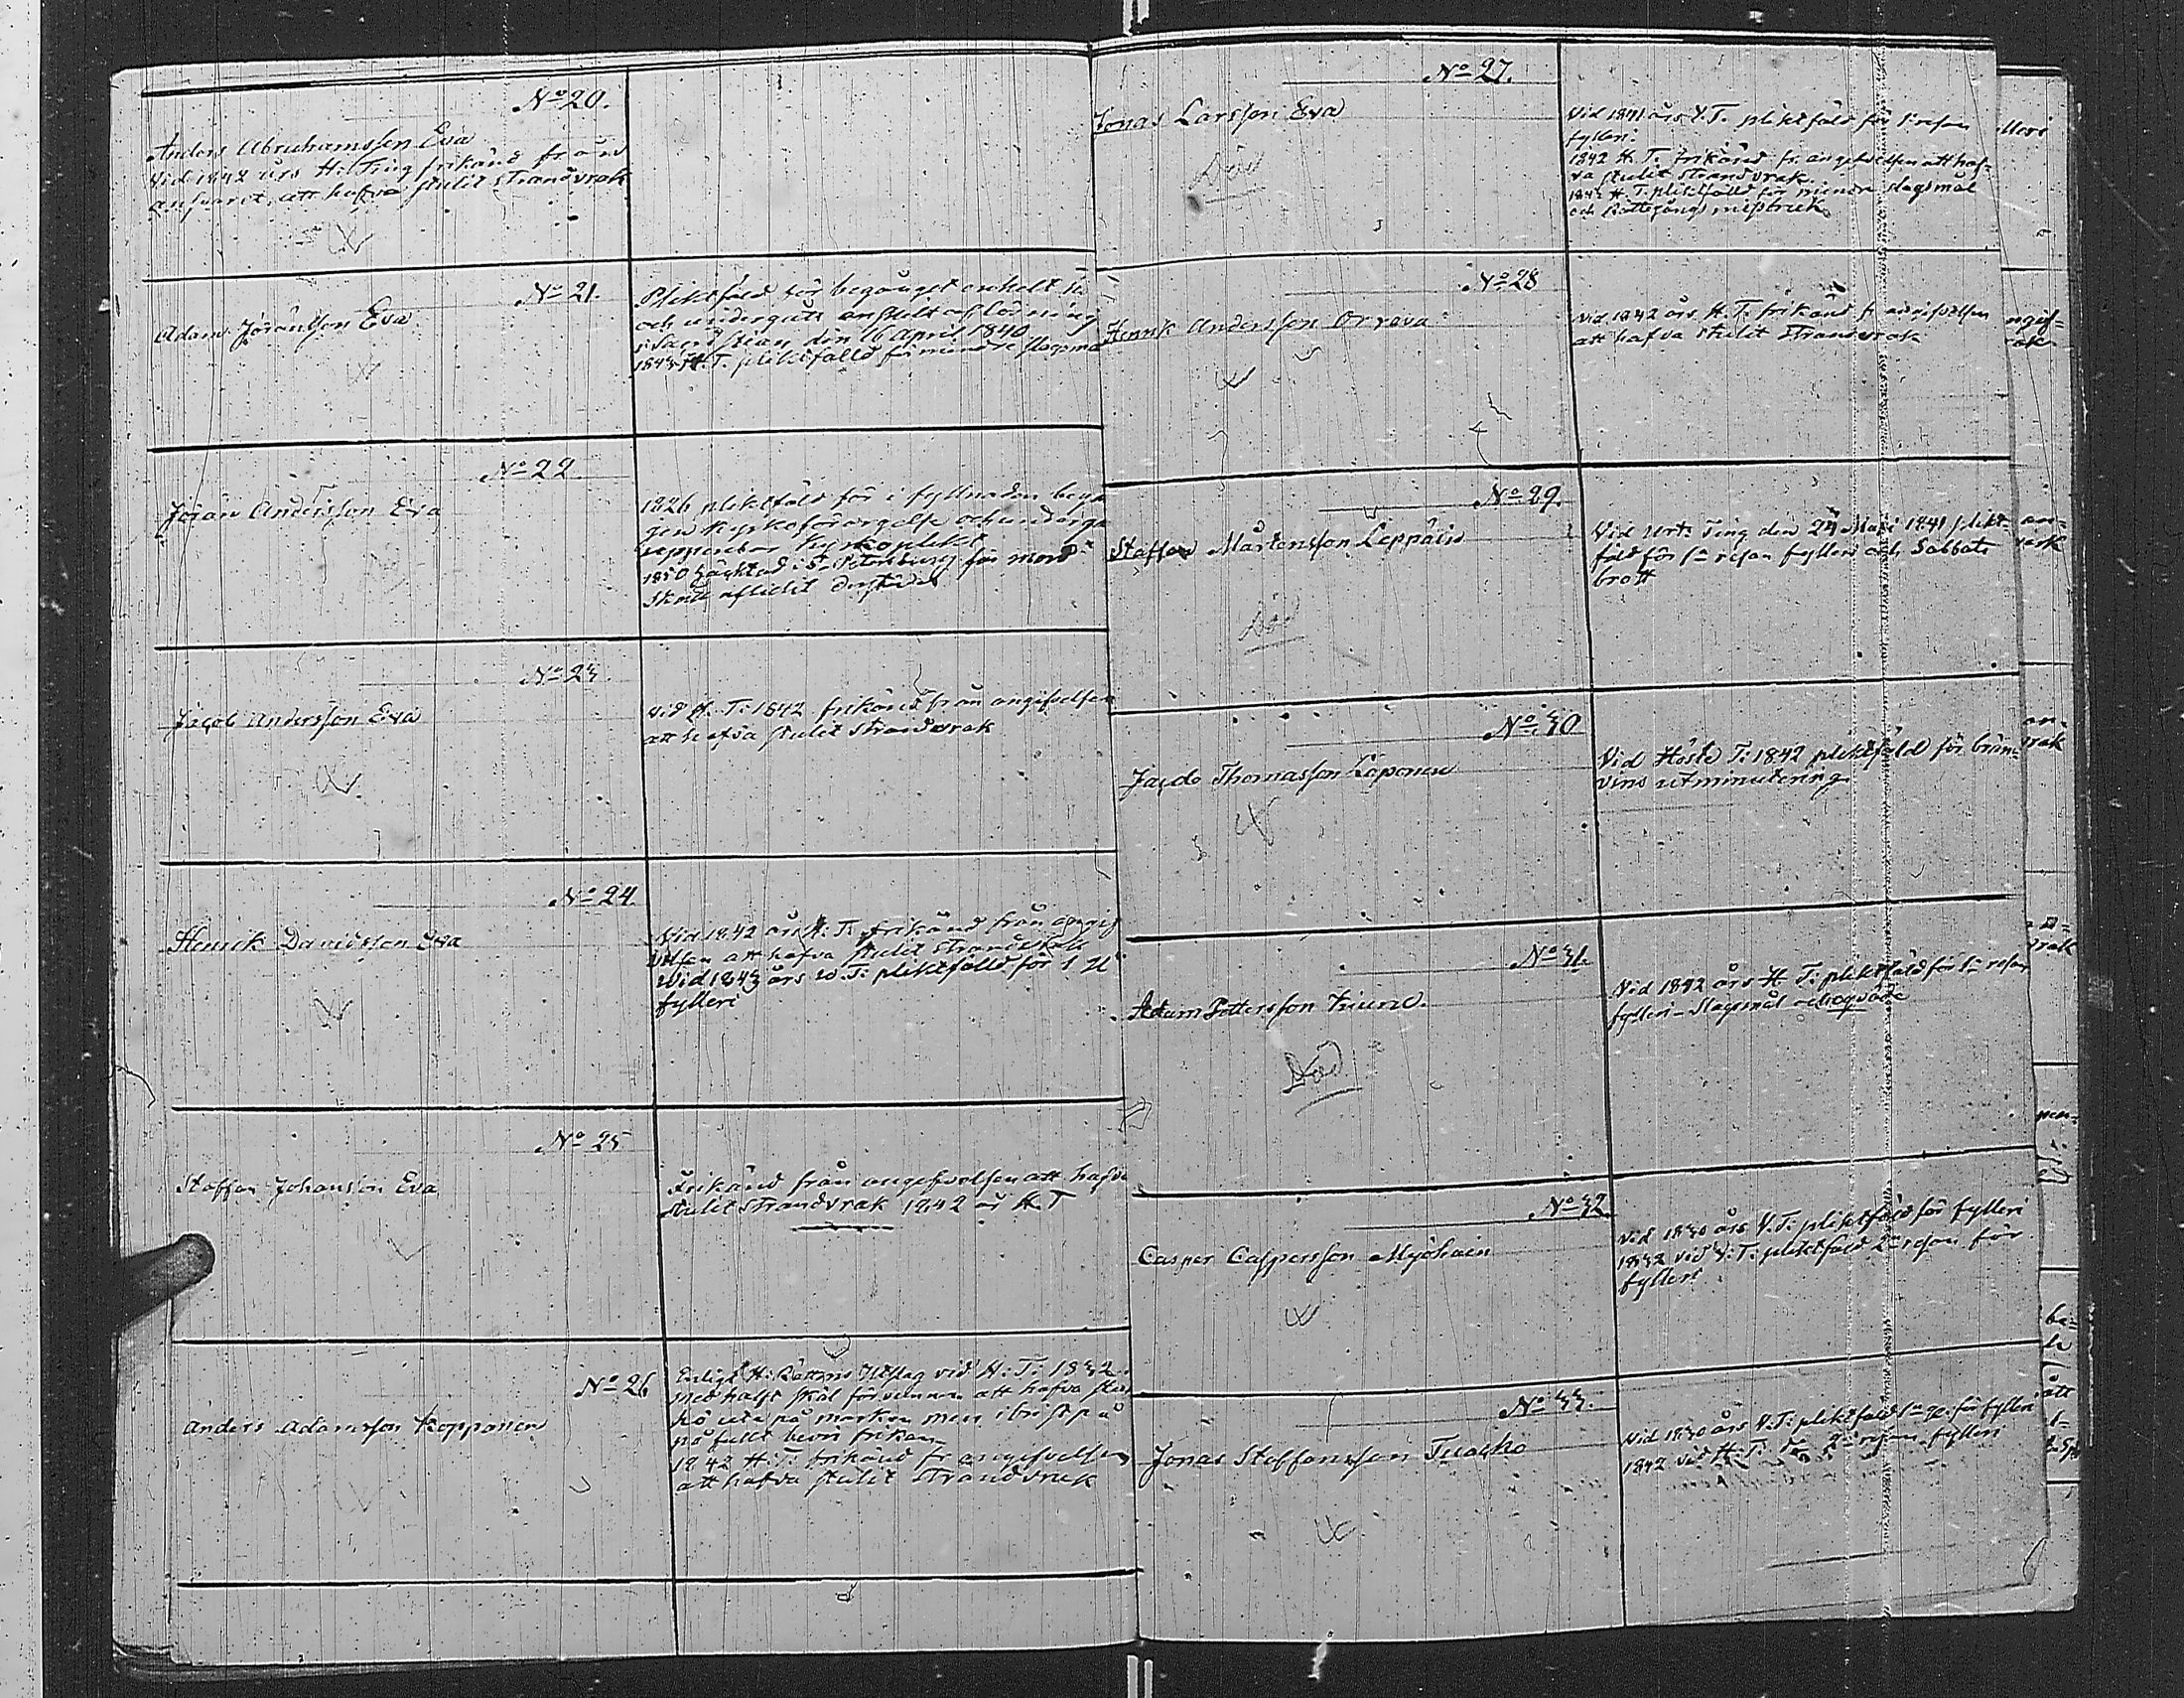 No 20.
Anders Abrahamsson Eva
Vid 1842 års H: Ting frikänd från
ansvaret, att hafva stulit strandvrak
No 21.
Adam Jöransson Eva
Pliktfäld för begånget enkelt
och undergått enskilt aflösning
i Sacristian den 16 April 1840
1843 H. T. pliktfälld för mindre slagsmål
No 22
Jöran Andersson Eva
1826 pliktfäld för i fyllnaden begån
gen Kyrkoförargelse och undergå
uppenbar Kyrkoplikt
1850 häktad i St Petersburg för mord
Skall aflidit derstädes
No 23.
Jacob Andersson Eva
Vid H. T: 1842 frikänd från angifvelsen
att hafva stulit strandvrak
No 24
Henrik Davidsson Eva
Vid 1842 års H: T: frikänd från angif
velsen att hafva stulit strandvrak
Vid 1843 års W. T: pliktfälld för 1
fylleri
No 25
Staffan Johansson Eva
Frikänd från angifvelsen att hafva
stulit strandvrak 1842 års H. T
No 26
Anders Adamsson Kopponen
Enligt H: Rättens Utslag vid H: T: 1832
med halft skäl förvunnen att hafva
hö ute på marken men i brist på
på fullt bevis frikän
1842 H. T: frikänd fr angifvelsen
att hafva stulit strandvrak
No 27.
Jonas Larsson Eva
Död
Vid 1841 års V. T. pliktfäld för 1 resan
fylleri
1842 H. T. frikänd fr. angifvelsen att haf-
va stulit strandvrak.
1843 H. T. pliktfälld för mindre slagsmål
och Rättegångs missbruk
No 28
Henrik Andersson Orrava
Vid 1842 års H. T. frikänd fr angifvelsen
att hafva stulit strandvrak
No 29.
Staffan Mårtensson Leppäin
Död
Vid Urt: Ting den 24 Mars 1841 plikt-
fäld för 1a resan fylleri och Sabbats
brott
No 30
Thomasson Loponen
Vid Höste T: 1842 pliktfäld för brän-
vins utminutering
No 31.
Adam Pettersson
Död
Vid 1842 års H T: pliktfäld för 1a resan
fylleri - slagsmål och oqväde
No 32
Casper Caspersson Myöhäin
Vid 1830 års V. T: pliktfäld för fylleri
1832 vid V: T: pliktfäld 2a resan för
fylleri
No 33.
Jonas Staffansson Tuocko
Vid 1830 års V. T: pliktfäld 1a för fylleri
1842 vid H: T: 2a resan fylleri